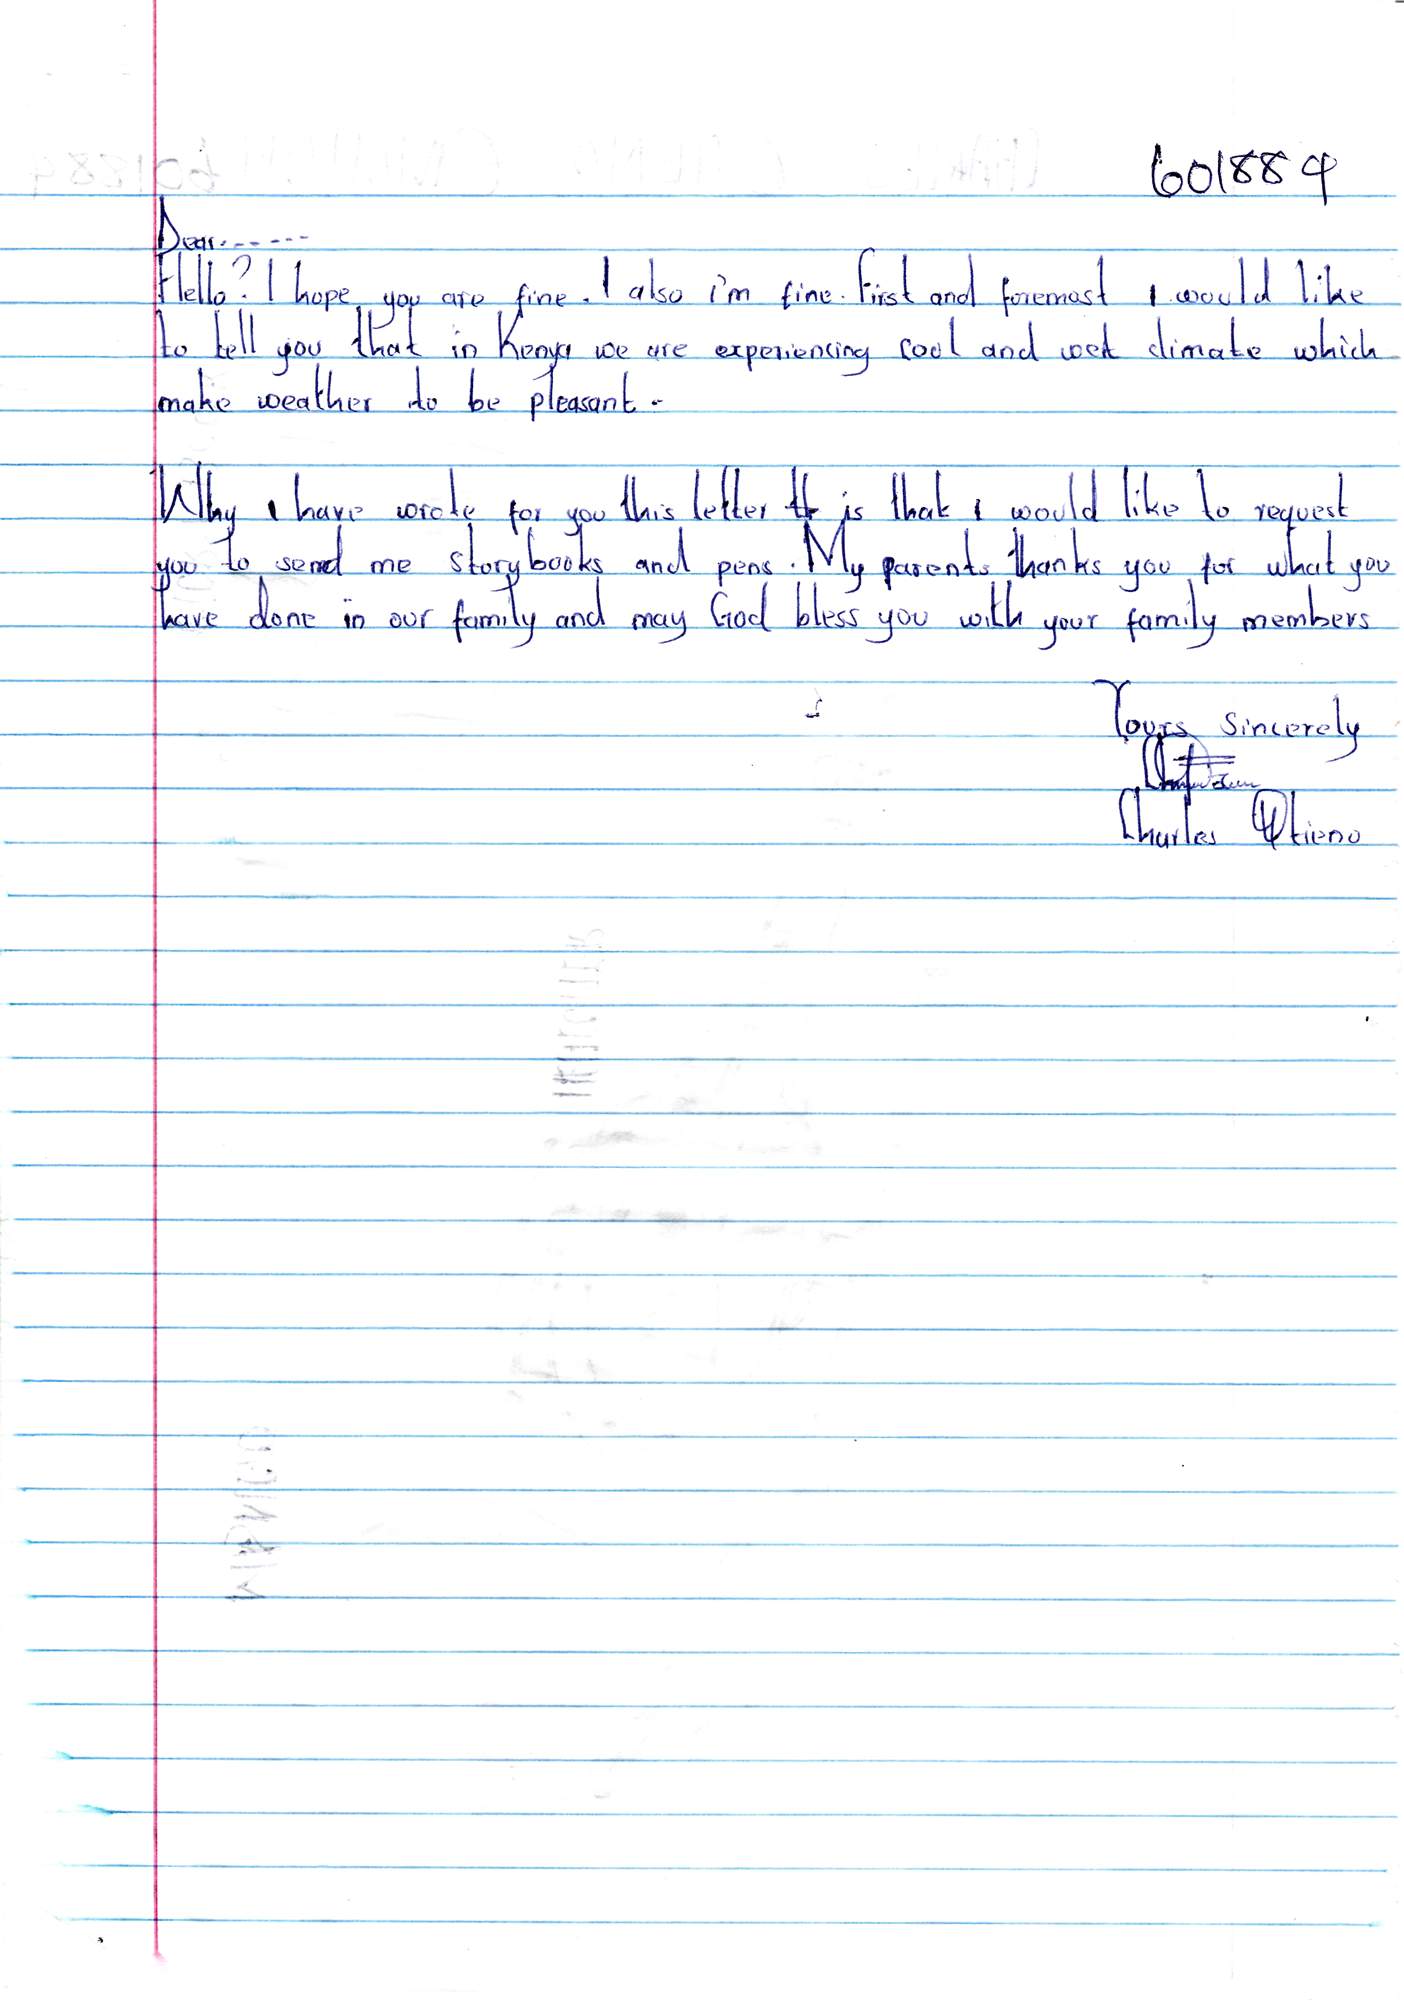 601884
Dear.------
Hello? I hope you are fine. I also i'm fine. First and foremost I would like
to tell you that in Kenya we are experiencing cool and wet climate which
make weather to be pleasant.
Why I have wrote for you this letter is that I would like to request
you to send me storybooks and pens. My parents thanks you for what you
have done in our family and may God bless you with your family members
Yours Sincerely
Charles Otieno